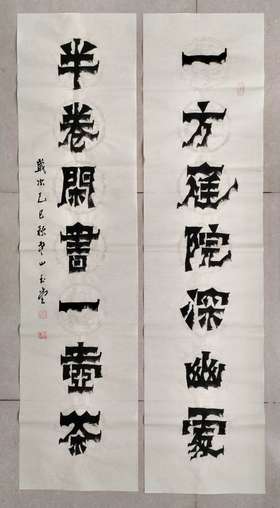 一方庭院深幽處
半卷閑書一壺茶
歲次乙巳